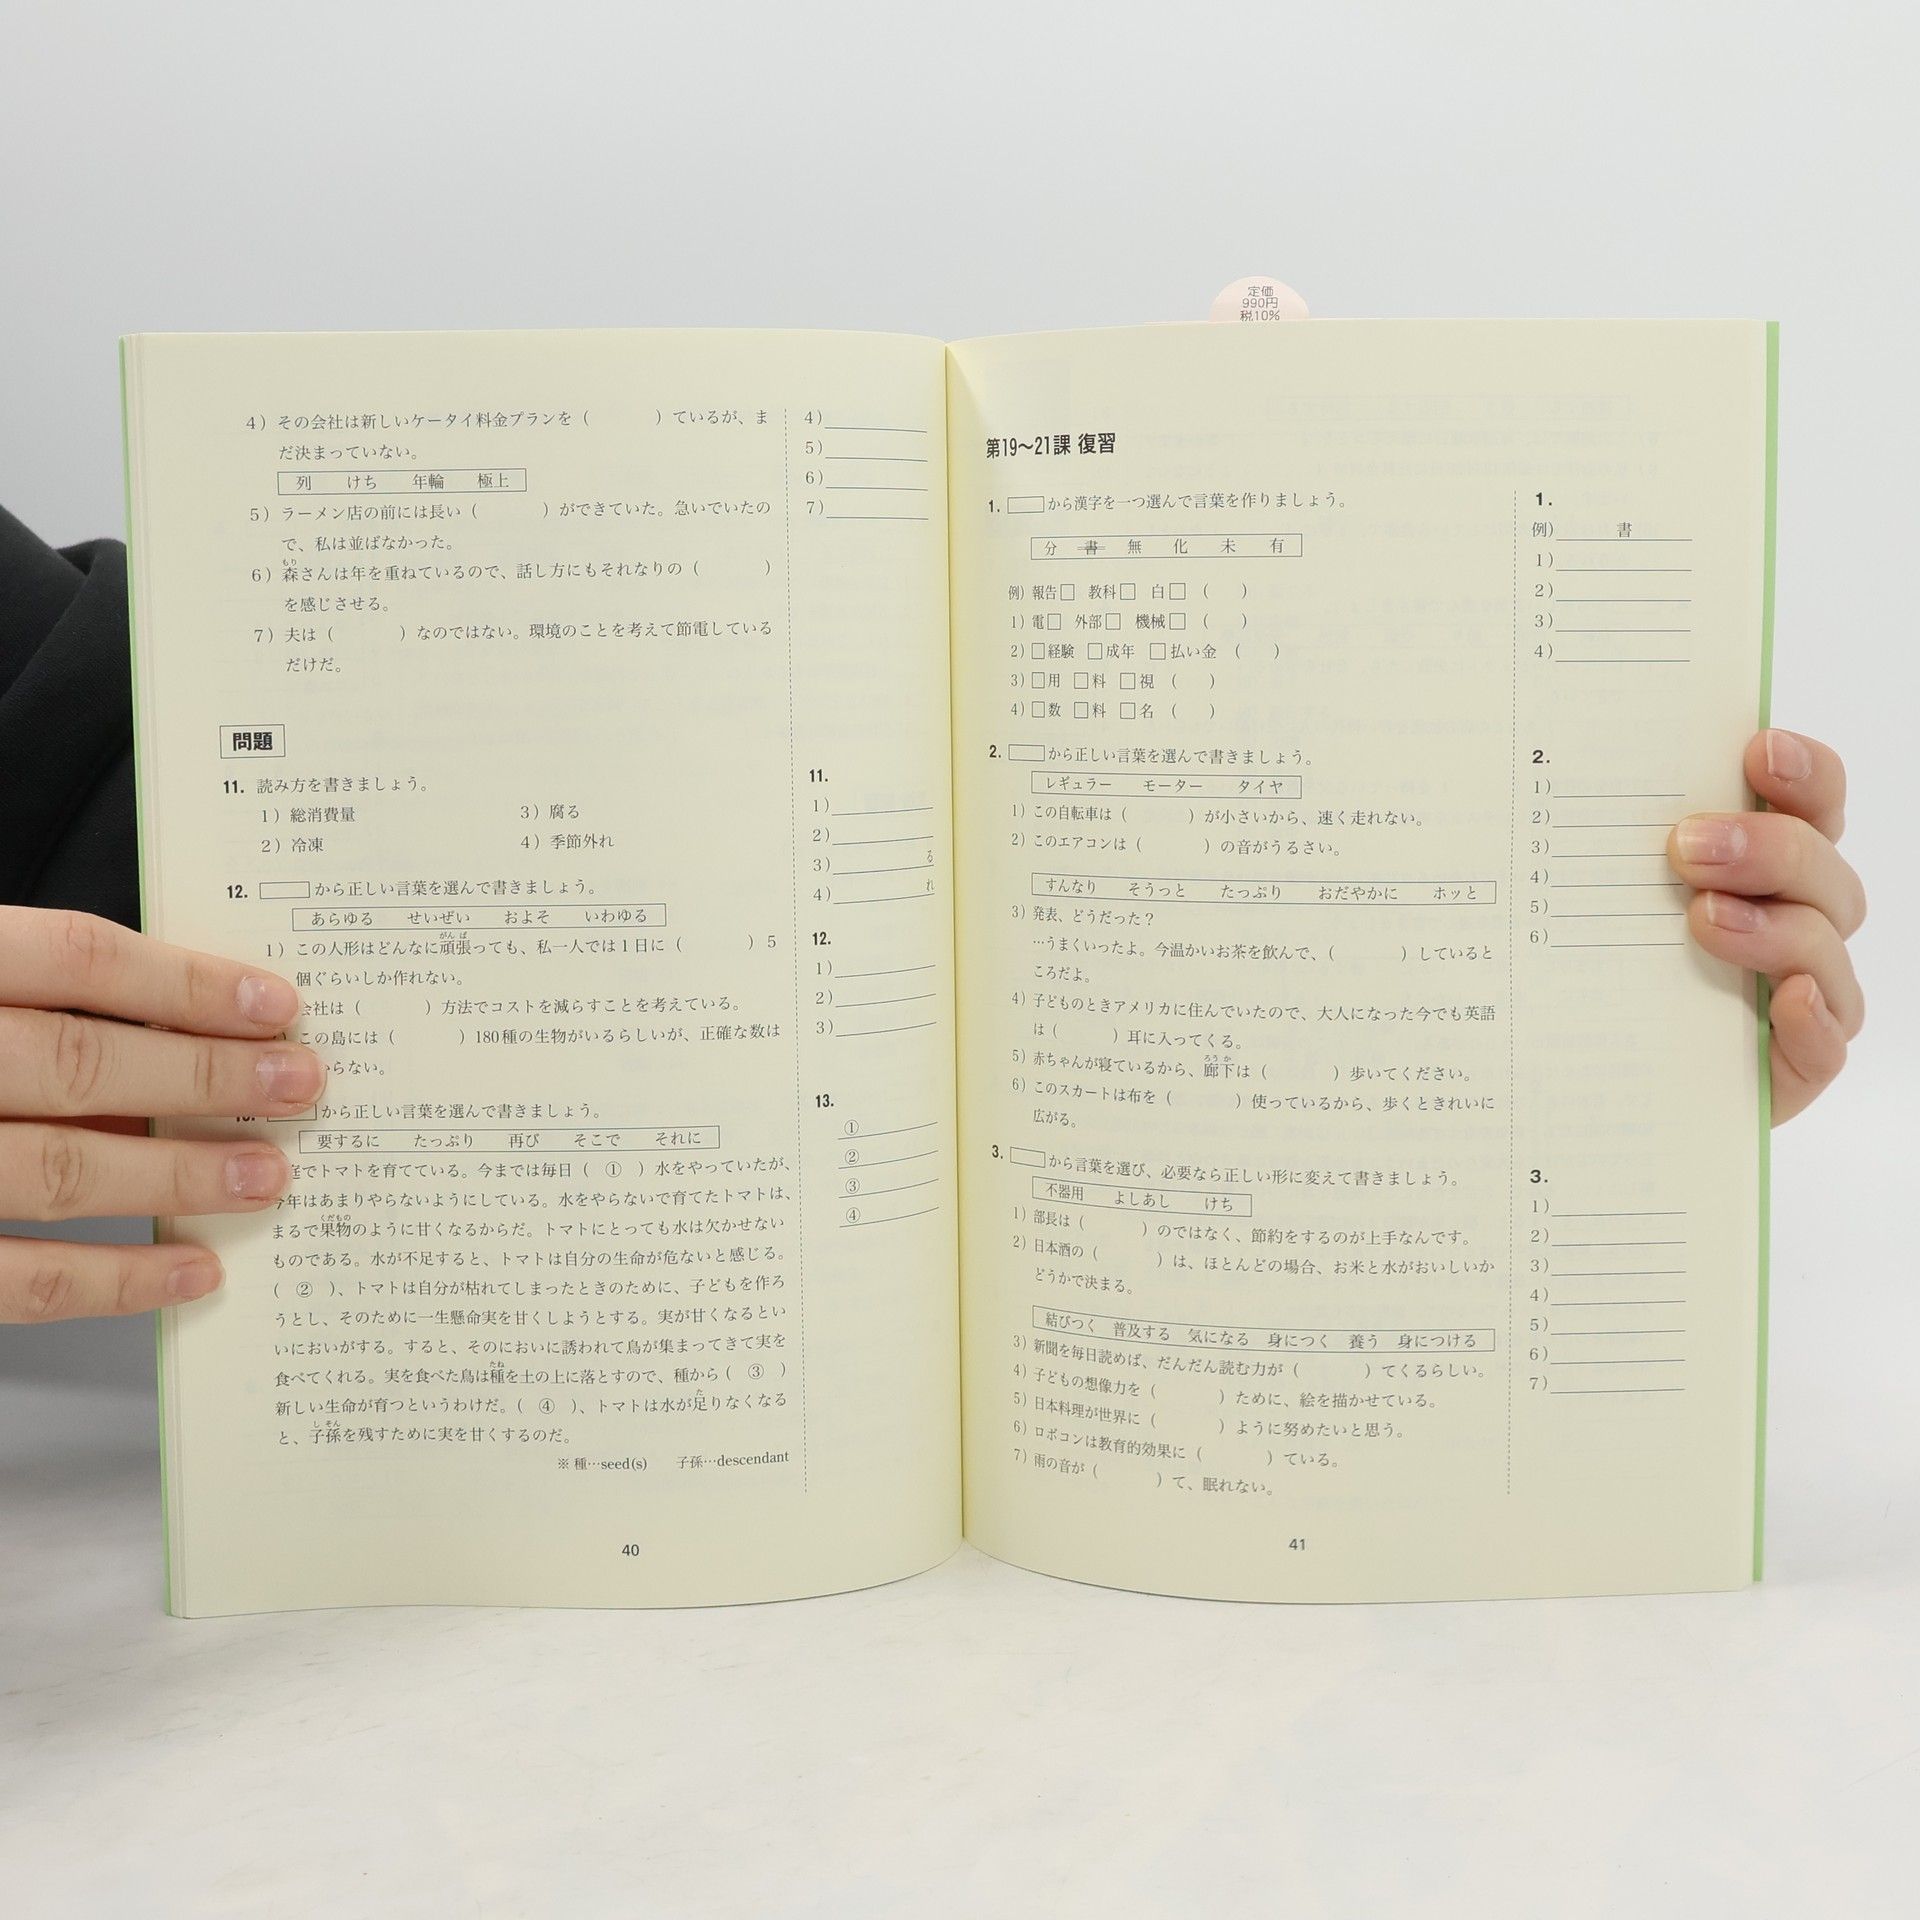 定価
990円
税10%
4）その会社は新しいケータイ料金プランを（　　　　）ているが、ま
だ決まっていない。
列　けち　年輪　極上
5）ラーメン店の前には長い（　　　　）ができていた。急いでいたの
で、私は並ばなかった。
もり
6）森さんは年を重ねているので、話し方にもそれなりの（　　　　）
を感じさせる。
7）夫は（　　　　）なのではない。環境のことを考えて節電している
だけだ。
4）
5）
6）
7）
問題
11. 読み方を書きましょう。
1）総消費量　3）腐る
2）冷凍　4）季節外れ
12. から正しい言葉を選んで書きましょう。
あらゆる　せいぜい　およそ　いわゆる
がん ば
1）この人形はどんなに頑張っても、私一人では１日に（　　　　）５
個ぐらいしか作れない。
会社は（　　　　）方法でコストを減らすことを考えている。
この島には（　　　　）180種の生物がいるらしいが、正確な数は
らない。
から正しい言葉を選んで書きましょう。
要するに　たっぷり　再び　そこで　それに
庭でトマトを育てている。今までは毎日（　①　）水をやっていたが、
今年はあまりやらないようにしている。水をやらないで育てたトマトは、
くだもの
まるで果物のように甘くなるからだ。トマトにとっても水は欠かせない
ものである。水が不足すると、トマトは自分の生命が危ないと感じる。
（　②　）、トマトは自分が枯れてしまったときのために、子どもを作ろ
うとし、そのために一生懸命実を甘くしようとする。実が甘くなるとい
いにおいがする。すると、そのにおいに誘われて鳥が集まってきて実を
たね
食べてくれる。実を食べた鳥は種を土の上に落とすので、種から（　③　）
た
新しい生命が育つというわけだ。（　④　）、トマトは水が足りなくなる
し そん
と、子孫を残すために実を甘くするのだ。
※ 種…seed(s)　子孫…descendant
11.
1）
2）
3）　る
4）　れ
12.
1）
2）
3）
13.
①
②
③
④
40
第19～21課 復習
1. から漢字を一つ選んで言葉を作りましょう。
分　書　無　化　未　有
例）報告□　教科□　白□　（　　）
1）電□　外部□　機械□　（　　）
2）□経験　□成年　□払い金　（　　）
3）□用　□料　□視　（　　）
4）□数　□料　□名　（　　）
2. から正しい言葉を選んで書きましょう。
レギュラー　モーター　タイヤ
1）この自転車は（　　　　）が小さいから、速く走れない。
2）このエアコンは（　　　　）の音がうるさい。
すんなり　そうっと　たっぷり　おだやかに　ホッと
3）発表、どうだった？
…うまくいったよ。今温かいお茶を飲んで、（　　　　）していると
ころだよ。
4）子どものときアメリカに住んでいたので、大人になった今でも英語
は（　　　　）耳に入ってくる。
ろう か
5）赤ちゃんが寝ているから、廊下は（　　　　）歩いてください。
6）このスカートは布を（　　　　）使っているから、歩くときれいに
広がる。
3. から言葉を選び、必要なら正しい形に変えて書きましょう。
不器用　よしあし　けち
1）部長は（　　　　）のではなく、節約をするのが上手なんです。
2）日本酒の（　　　　）は、ほとんどの場合、お米と水がおいしいか
どうかで決まる。
結びつく　普及する　気になる　身につく　養う　身につける
3）新聞を毎日読めば、だんだん読む力が（　　　　）てくるらしい。
4）子どもの想像力を（　　　　）ために、絵を描かせている。
5）日本料理が世界に（　　　　）ように努めたいと思う。
6）ロボコンは教育的効果に（　　　　）ている。
7）雨の音が（　　　　）て、眠れない。
1.
例）　書
1）
2）
3）
4）
2.
1）
2）
3）
4）
5）
6）
3.
1）
2）
3）
4）
5）
6）
7）
41